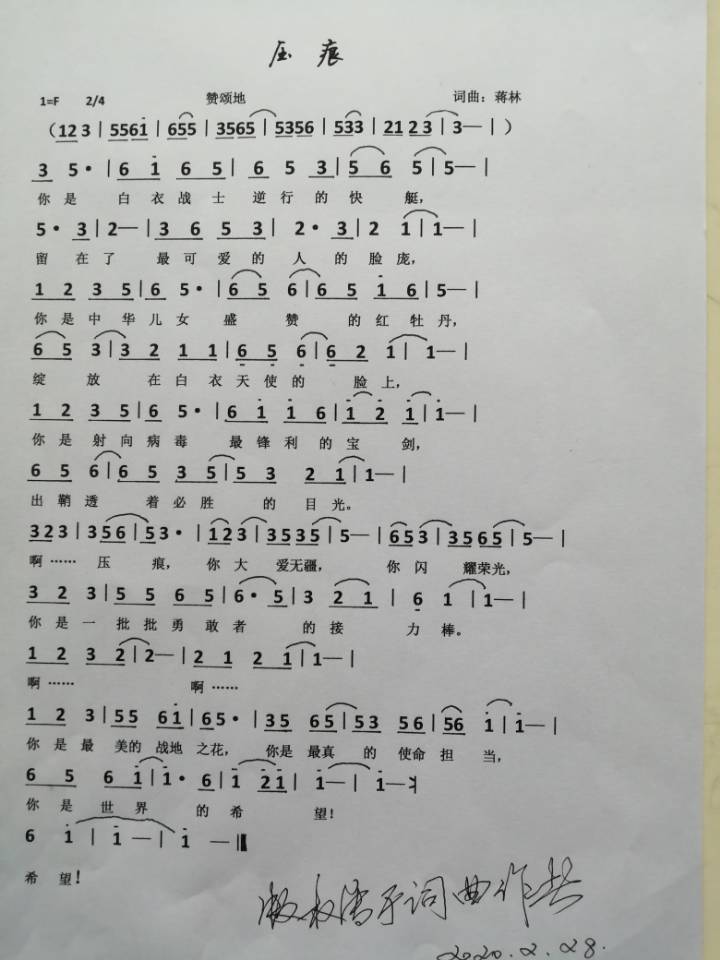 压痕
1=F 2/4 赞颂地 词曲：蒋林
（123｜5561｜655｜3565｜5356｜533｜21 23｜3—｜）
3 5·｜6 1 6 5｜6 5 3｜5 6 5｜5—｜
你是 白衣战士 逆行的快 艇，
5· 3｜2—｜3 6 5 3｜2· 3｜2 1｜1—｜
留在了 最可爱的人的脸庞，
1 2 3 5｜6 5·｜6 5 6｜6 5 1 6｜5—｜
你是中华儿女盛 赞 的红牡丹，
6 5 3｜3 2 1 1｜6 5 6｜6 2 1｜1—｜
绽 放 在白衣天使的 脸上，
1 2 3 5｜6 5·｜6 1 1 6｜1 2 1｜1—｜
你是射向病毒 最锋利的宝 剑，
6 5 6｜6 5 3 5｜5 3 2 1｜1—｜
出鞘透 着必胜 的目光。
323｜3 56｜53·｜123｜3535｜5—｜653｜3565｜5—｜
啊…… 压 痕， 你大 爱无疆， 你闪 耀荣光，
3 2 3｜5 5 6 5｜6· 5｜3 2 1｜6 1｜1—｜
你是一批批勇敢者 的接 力棒。
1 2 3 2｜2—｜2 1 2 1｜1—｜
啊…… 啊……
1 2 3｜55 61｜65·｜35 65｜53 56｜56 1｜1—｜
你是最 美的 战地 之花， 你是最真 的 使命 担 当，
6 5 6 1｜1· 6｜1 21｜1—｜1—
你是 世界 的希 望！
6 1｜1 —｜1 —‖
希望！
2020.2.28.